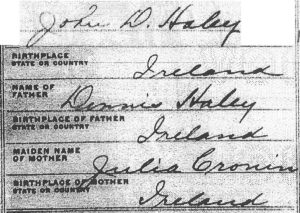 John D. Haley
BIRTHPLACE
STATE OR COUNTRY
Ireland
NAME OF
FATHER
Dennis Haley
BIRTHPLACE OF FATHER
STATE OR COUNTRY
Ireland
MAIDEN NAME
OF MOTHER
Julia Cronin
BIRTHPLACE OF MOTHER
STATE OR COUNTRY
Ireland